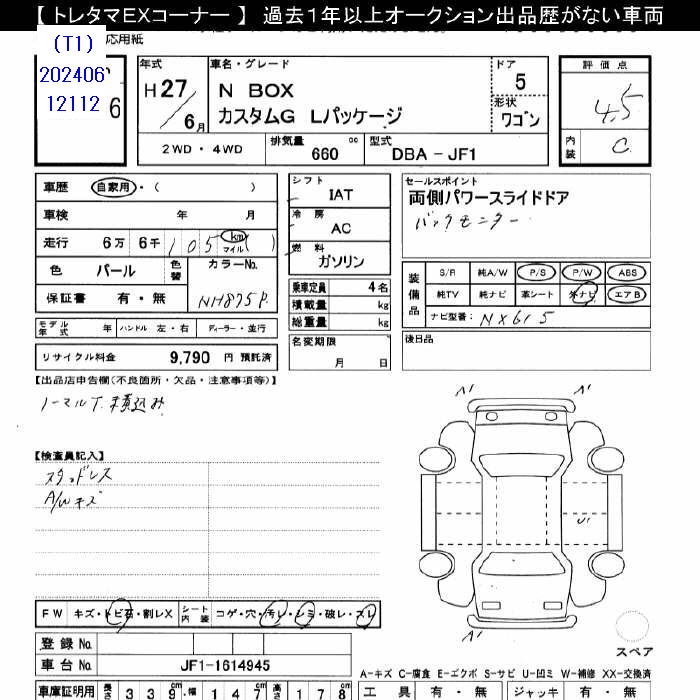 【 トレタマEXコーナー 】 過去1年以上オークション出品歴がない車両
応用紙
(T1)
202406
12112
6
年式
H 27/6月
車名・グレード
N BOX
カスタムG Lパッケージ
ドア
5
形状
ワゴン
評価点
4.5
内装
C
2WD・4WD
排気量 660 cc
型式 DBA-JF1
車歴 自家用・( )
車検 年 月
走行 6万 6千 105 km マイル( )
色 パール
色替
カラーNo.
NH875P.
保証書 有・無
モデル年式 年
ハンドル 左・右
ディーラー・並行
リサイクル料金 9,790 円 預託済
シフト
IAT
冷房
AC
燃料
ガソリン
乗車定員 4名
積載量 kg
総重量 kg
名変期限
月 日
セールスポイント
両側パワースライドドア
バックモニター
装備品
S/R 純A/W P/S P/W ABS
純TV 純ナビ 革シート 外ナビ エアB
ナビ型番: NX615
後日品
【出品店申告欄(不良箇所・欠品・注意事項等)】
ノーマルT.積込み
【検査員記入】
スタッドレス
A/Wキズ
A1
A1
U1
A1
スペア
FW キズ・トビ石・割レX
シート内装 コゲ・穴・汚レ・シミ・破レ・スレ
登録No.
車台No. JF1-1614945
A-キズ C-腐食 E-エクボ S-サビ U-凹ミ W-補修 XX-交換済
車庫証明用 長さ 339 幅 147 高さ 178
工具 有・無 ジャッキ 有・無